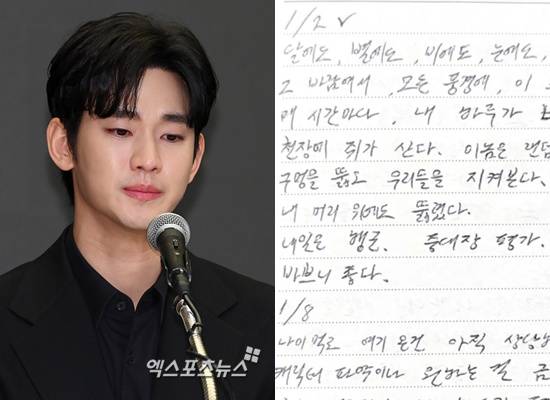 1/2 ✓
달에도, 별에도, 비에도, 눈에도,
2 바람에서, 모든 풍경에, 이
매 시간마다, 내 하루가
천장에 쥐가 산다. 이놈은 랜덤
구멍을 뚫고 우리들을 지켜본다.
내 머리 위에도 뚫렸다.
내일은 행군. 중대장 평가.
바쁘니 좋다.
1/8
나이먹고 여기 온건 아직 상남
캐릭터 파악이나 원하는 걸 금
엑스포츠뉴스